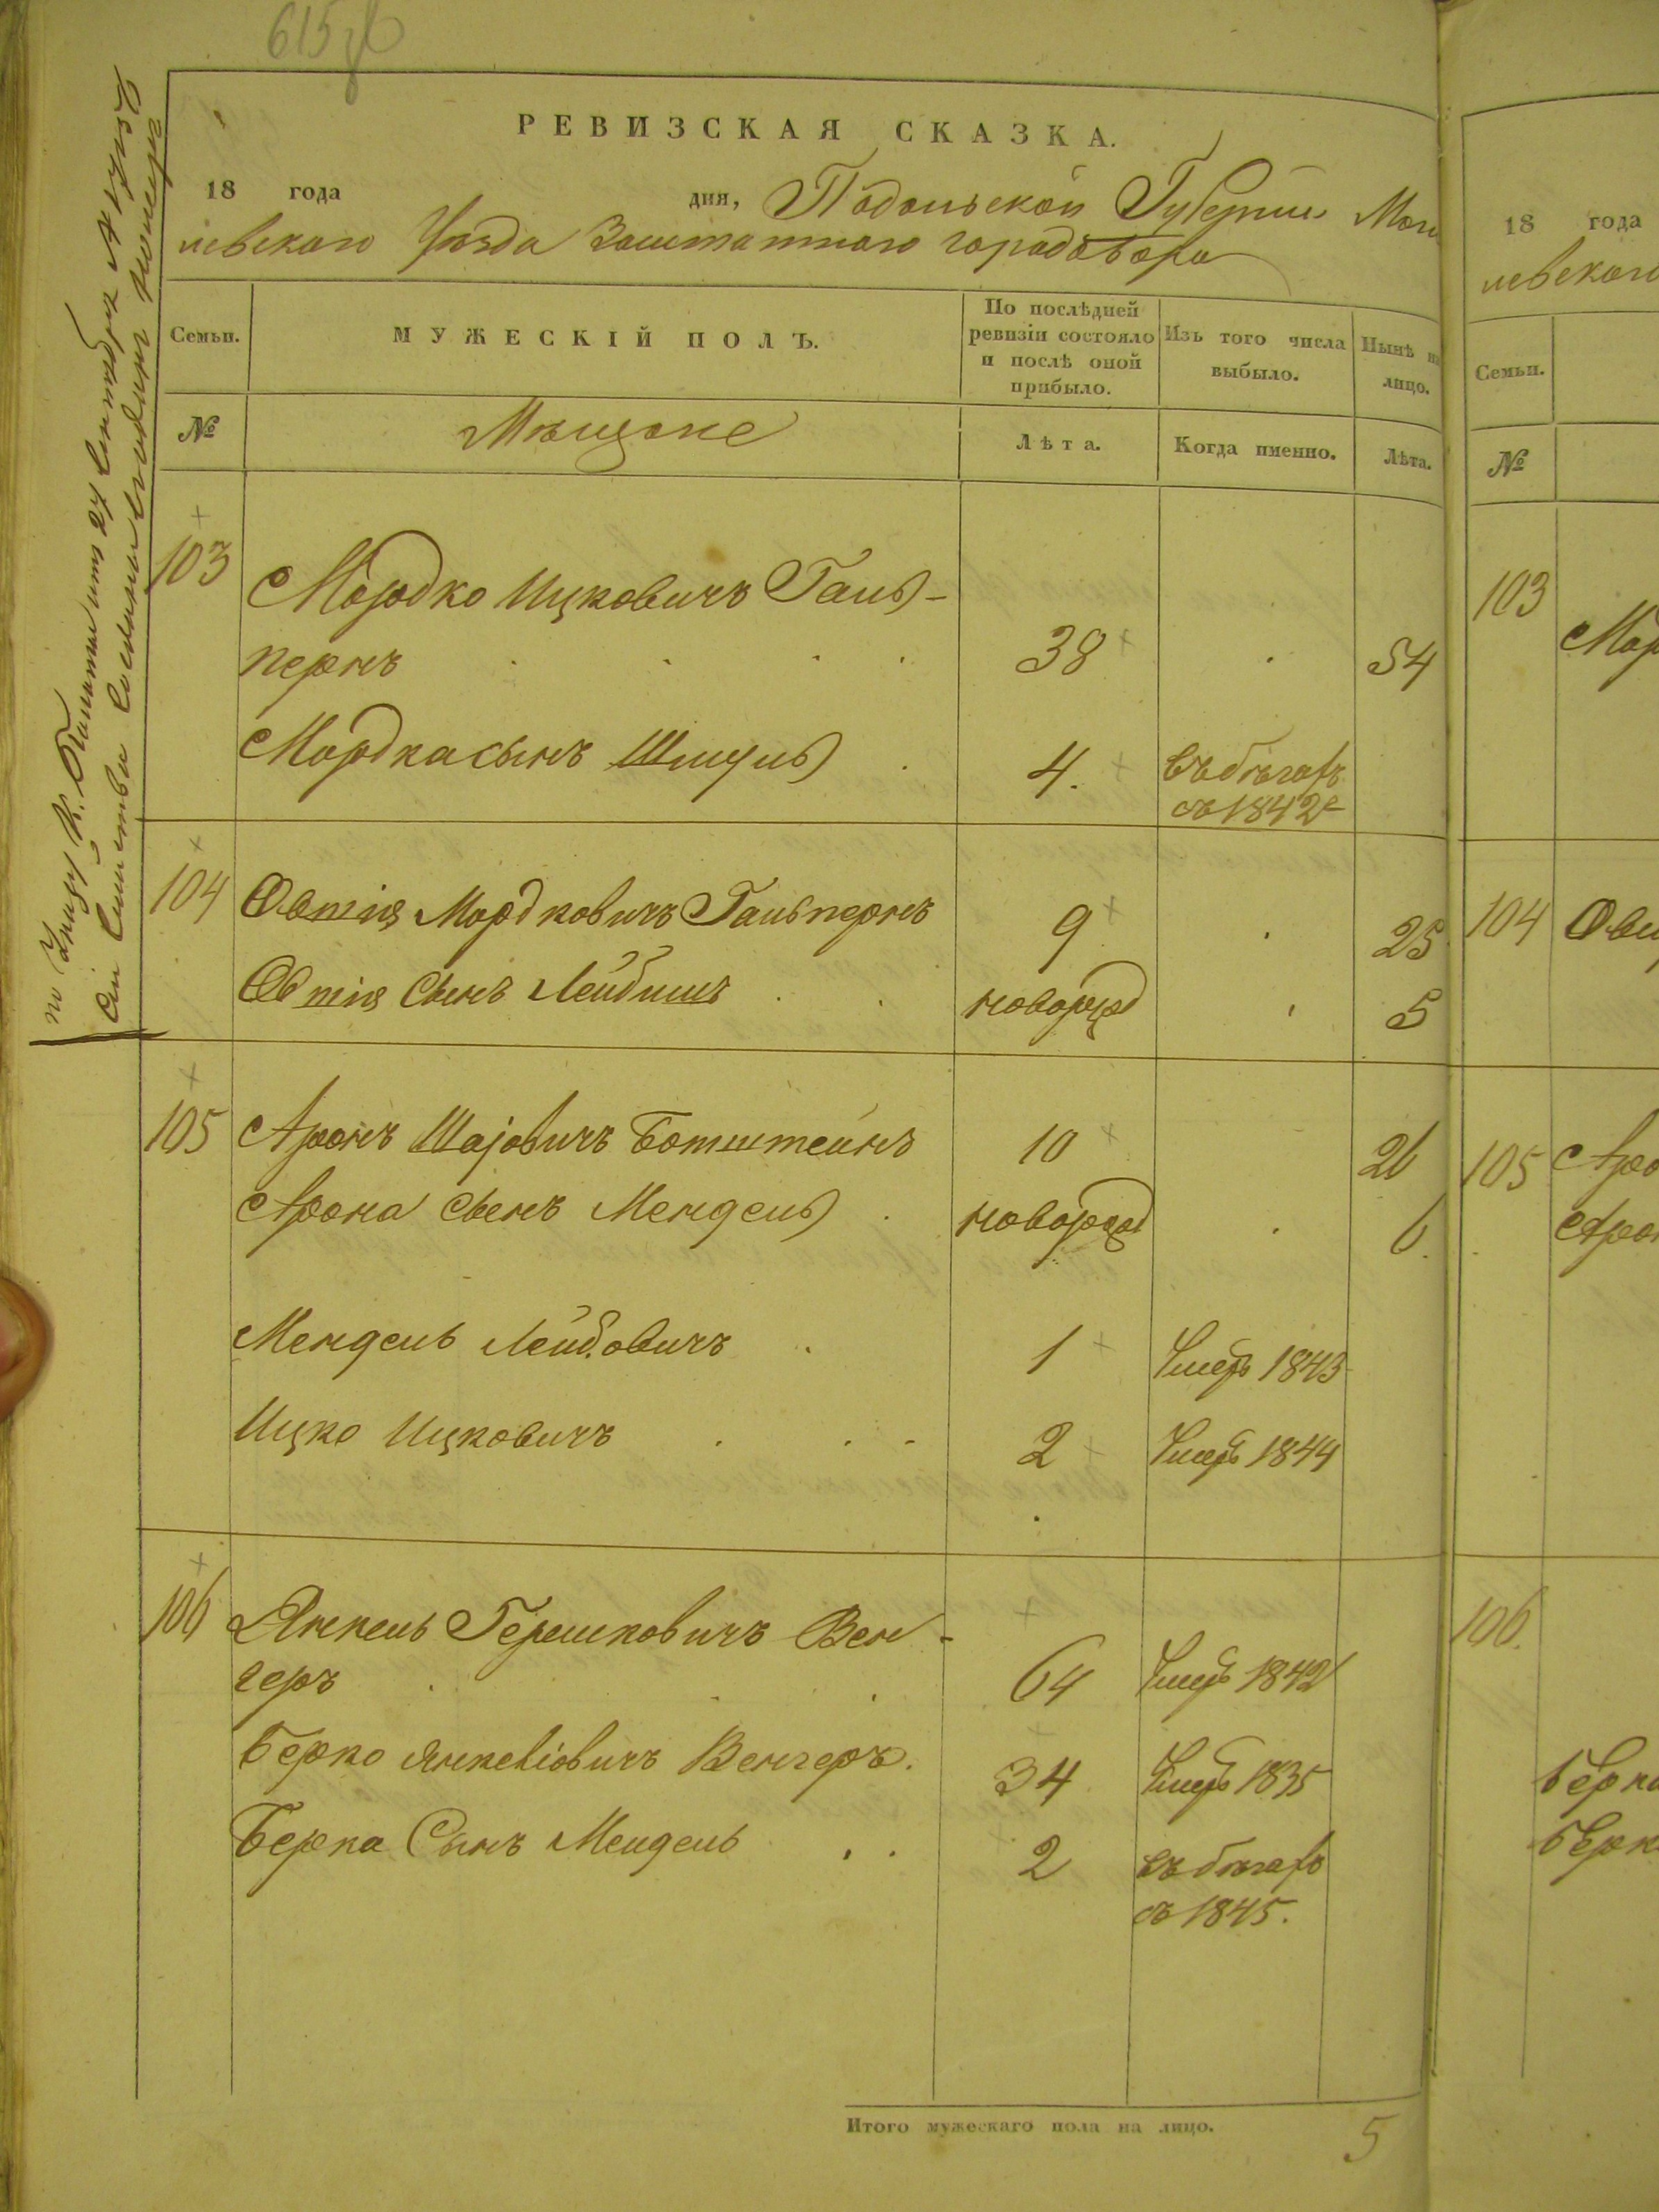 615
РЕВИЗСКАЯ СКАЗКА.
18 года дня, Подольской Губерніи Моги
левскаго Уѣзда Заштатнаго города Бара
Семьи.
МУЖЕСКІЙ ПОЛЪ.
По послѣдней ревизіи состояло и послѣ оной прибыло.
Изъ того числа выбыло.
Нынѣ на лицо.
№
Мѣщане
Лѣта.
Когда именно.
Лѣта.
по Указу К. Палаты отъ 27 Сентября
сіи Семейства
103 Мордко Ицковичъ Галь-
пернъ 38 54
Мордка сынъ Шмуль 4. въ бѣгахъ
съ 1842
104 Овшія Мордковичъ Гальпернъ 9 25
Овшія Сынъ Лейбишъ новорожд 5
105 Аронъ Шаіовичъ Ботштейнъ 10 26
Арона Сынъ Мендель новорожд 6.
Мендель Лейбовичъ 1 Умеръ 1843
Ицко Ицковичъ 2 Умеръ 1844
106 Янкель Гершковичъ Вен-
геръ 64 Умеръ 1842
Берко Янкеліовичъ Венгеръ. 34 Умеръ 1835
Берка Сынъ Мендель 2 въ бѣгахъ
съ 1845.
Итого мужескаго пола на лицо. 5
18 года
левскаго
Семьи.
№
103
Мор
104
105
Аро
Аро
106.
Берк
Берк